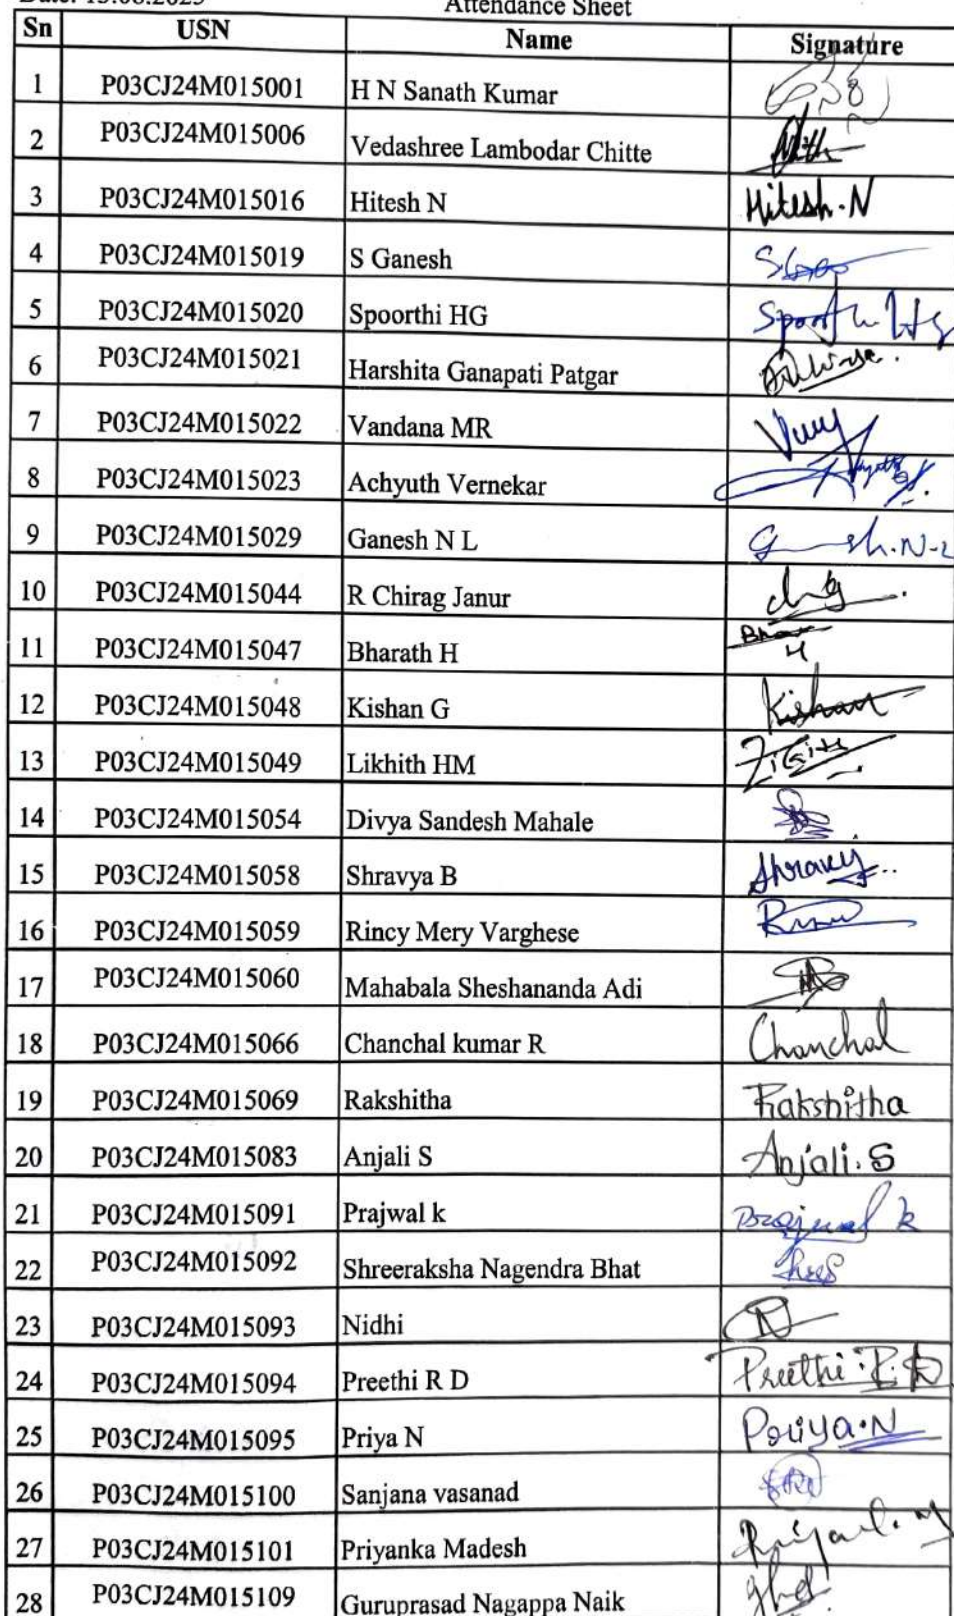 Attendance Sheet
Sn USN Name Signature
1 P03CJ24M015001 H N Sanath Kumar
2 P03CJ24M015006 Vedashree Lambodar Chitte
3 P03CJ24M015016 Hitesh N Hitesh.N
4 P03CJ24M015019 S Ganesh
5 P03CJ24M015020 Spoorthi HG
6 P03CJ24M015021 Harshita Ganapati Patgar
7 P03CJ24M015022 Vandana MR
8 P03CJ24M015023 Achyuth Vernekar
9 P03CJ24M015029 Ganesh N L
10 P03CJ24M015044 R Chirag Janur
11 P03CJ24M015047 Bharath H
12 P03CJ24M015048 Kishan G Kishan
13 P03CJ24M015049 Likhith HM
14 P03CJ24M015054 Divya Sandesh Mahale
15 P03CJ24M015058 Shravya B
16 P03CJ24M015059 Rincy Mery Varghese
17 P03CJ24M015060 Mahabala Sheshananda Adi
18 P03CJ24M015066 Chanchal kumar R Chanchal
19 P03CJ24M015069 Rakshitha Rakshitha
20 P03CJ24M015083 Anjali S Anjali.S
21 P03CJ24M015091 Prajwal k Prajwal k
22 P03CJ24M015092 Shreeraksha Nagendra Bhat
23 P03CJ24M015093 Nidhi
24 P03CJ24M015094 Preethi R D Preethi.R.D
25 P03CJ24M015095 Priya N Priya.N
26 P03CJ24M015100 Sanjana vasanad
27 P03CJ24M015101 Priyanka Madesh
28 P03CJ24M015109 Guruprasad Nagappa Naik